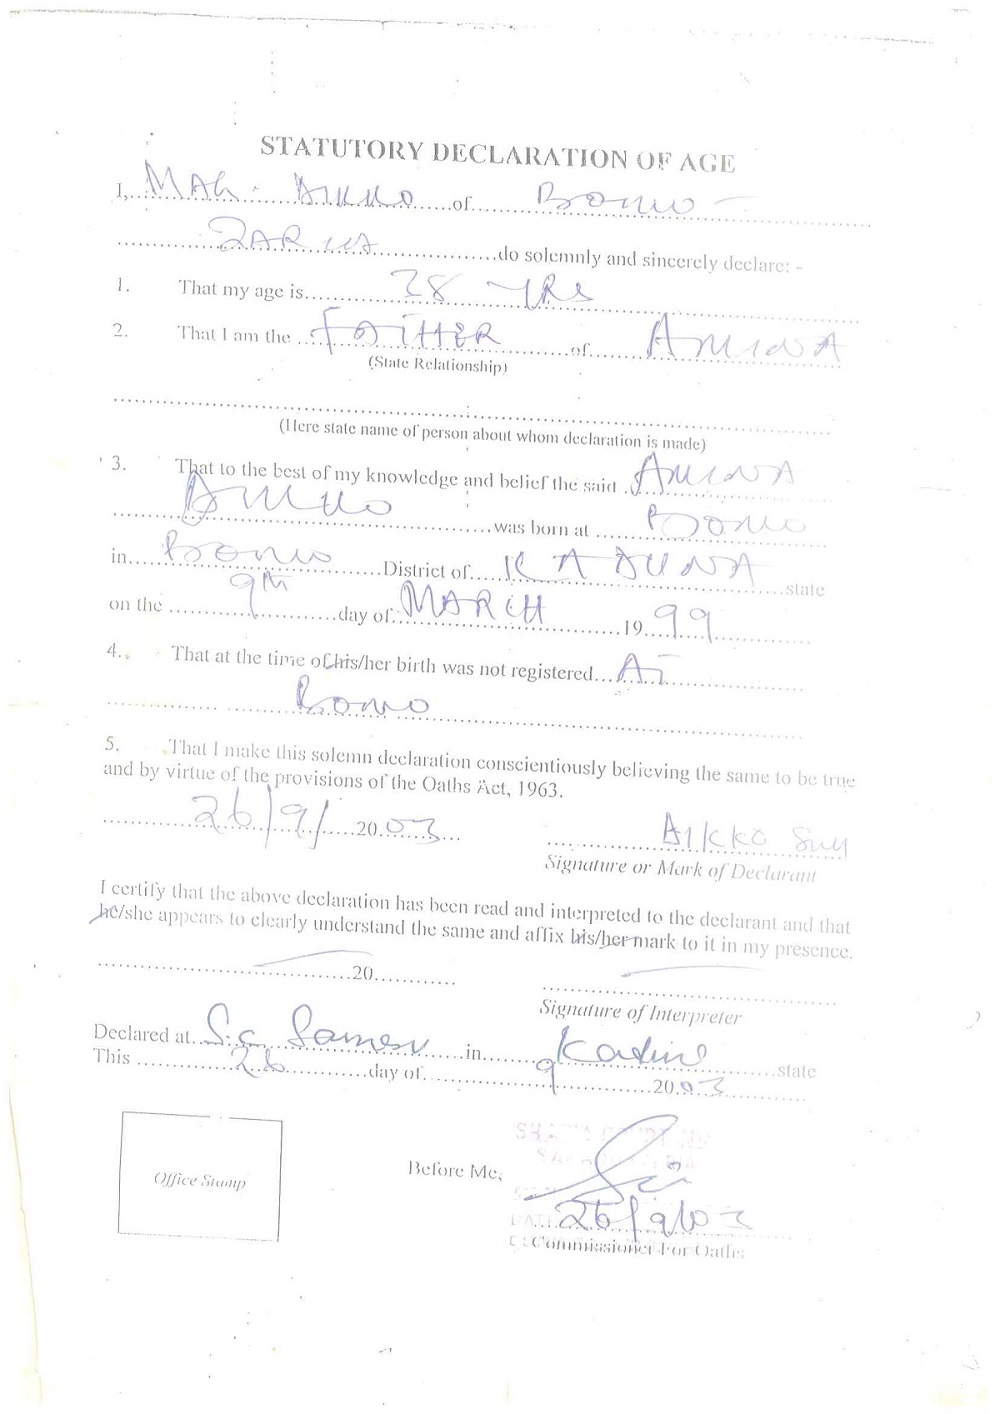 STATUTORY DECLARATION OF AGE
I, MAL. DIKKO of BOMO -
ZARIA do solemnly and sincerely declare: -
1. That my age is 38 YRS
2. That I am the FATHER of AMINA
(State Relationship)
(Here state name of person about whom declaration is made)
3. That to the best of my knowledge and belief the said AMINA
DIKKO was born at BOMO
in BOMO District of KADUNA state
on the 9th day of MARCH 1999
4. That at the time of his/her birth was not registered AT
BOMO
5. That I make this solemn declaration conscientiously believing the same to be true
and by virtue of the provisions of the Oaths Act, 1963.
26/9/ 2003 DIKKO
Signature or Mark of Declarant
I certify that the above declaration has been read and interpreted to the declarant and that
he/she appears to clearly understand the same and affix his/her mark to it in my presence.
20
Signature of Interpreter
Declared at S.C. Samaru in Kaduna state
This 26 day of 9 2003
Office Stamp
Before Me;
26/9/03
Commissioner For Oaths